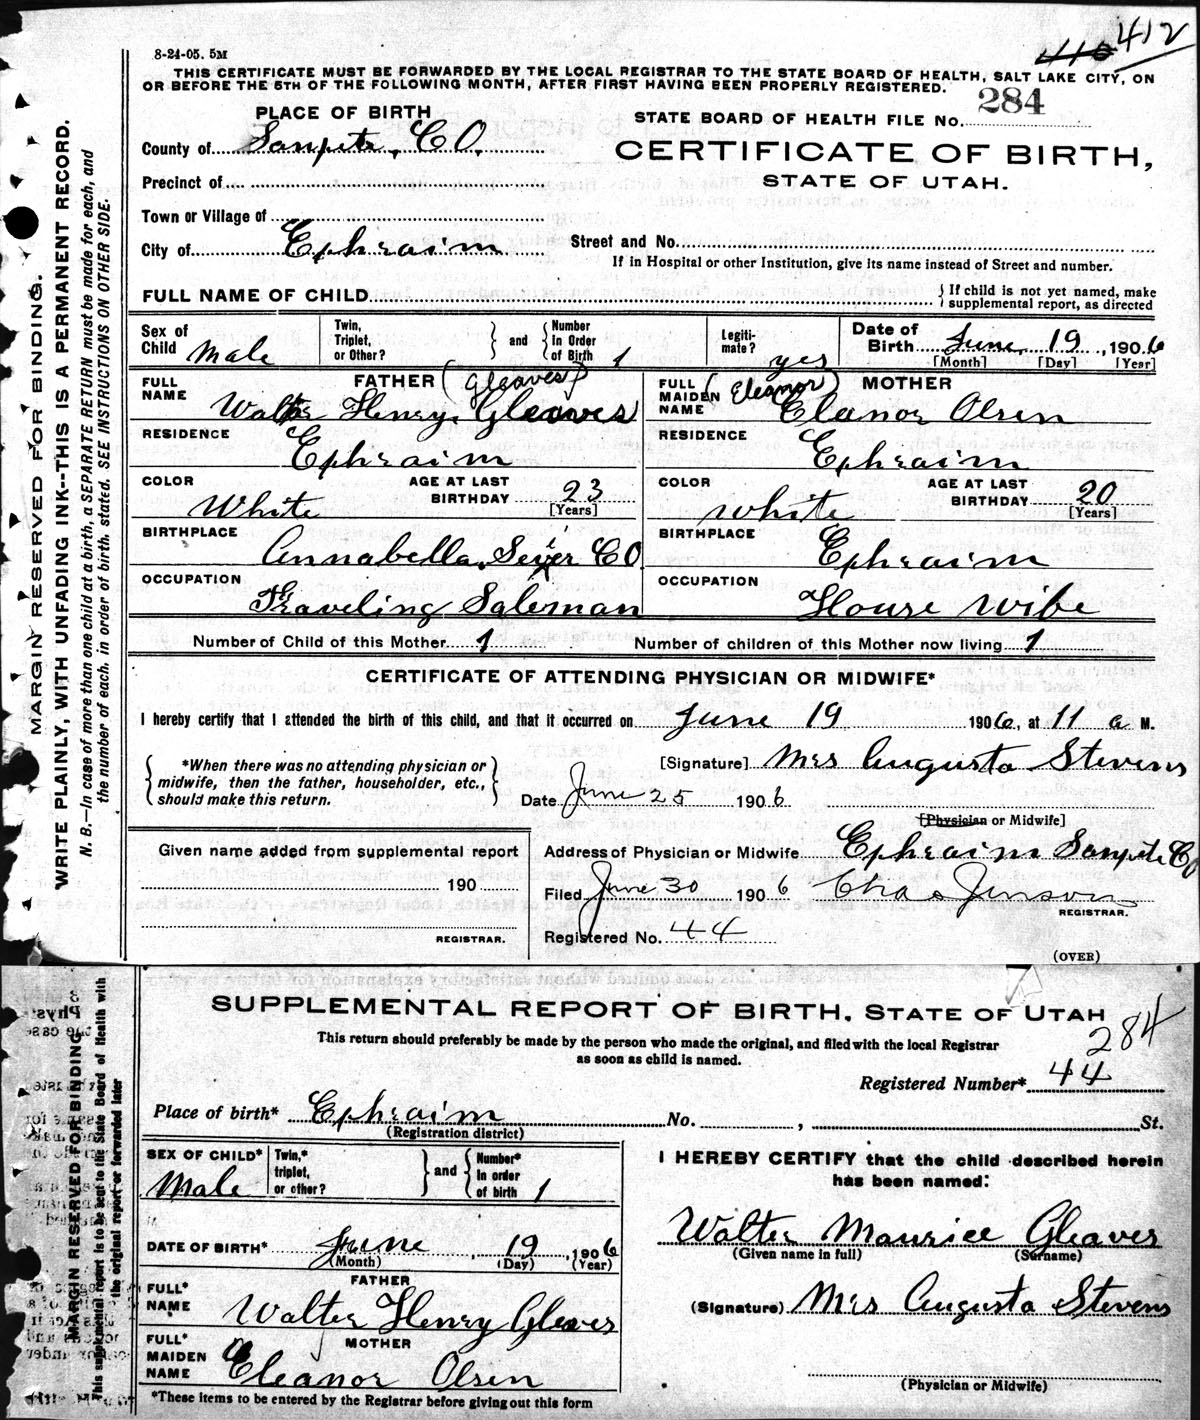 412
110
8-24-05. 5M
THIS CERTIFICATE MUST BE FORWARDED BY THE LOCAL REGISTRAR TO THE STATE BOARD OF HEALTH, SALT LAKE CITY, ON
OR BEFORE THE 5TH OF THE FOLLOWING MONTH, AFTER FIRST HAVING BEEN PROPERLY REGISTERED.
STATE BOARD OF HEALTH FILE No. 284
CERTIFICATE OF BIRTH,
STATE OF UTAH.
PLACE OF BIRTH
County of Sanpete, CO.
Precinct of
Town or Village of
City of Ephraim
Street and No.
If in Hospital or other Institution, give its name instead of Street and number.
FULL NAME OF CHILD
If child is not yet named, make
supplemental report, as directed
Sex of Child Male
Twin, Triplet, or Other?
and
Number In Order of Birth 1
Legitimate? yes
Date of Birth June 19, 1906
[Month] [Day] [Year]
FATHER (Gleaves)
FULL NAME Walter Henry Gleaves
RESIDENCE Ephraim
COLOR White
AGE AT LAST BIRTHDAY 23
[Years]
BIRTHPLACE Annabella, Sevier CO
OCCUPATION Traveling Salesman
(Eleanor) MOTHER
FULL MAIDEN NAME Elanor Olsen
RESIDENCE Ephraim
COLOR White
AGE AT LAST BIRTHDAY 20
[Years]
BIRTHPLACE Ephraim
OCCUPATION House Wife
Number of Child of this Mother 1
Number of children of this Mother now living 1
CERTIFICATE OF ATTENDING PHYSICIAN OR MIDWIFE*
I hereby certify that I attended the birth of this child, and that it occurred on June 19 1906, at 11 a M.
*When there was no attending physician or
midwife, then the father, householder, etc.,
should make this return.
[Signature] Mrs Augusta Stevens
Date June 25 1906
[Physician or Midwife]
Given name added from supplemental report
190
REGISTRAR.
Address of Physician or Midwife Ephraim Sanpete Co
Filed June 30 1906 Chas Jenson
REGISTRAR.
Registered No. 44
(OVER)
MARGIN RESERVED FOR BINDING.
WRITE PLAINLY, WITH UNFADING INK--THIS IS A PERMANENT RECORD.
N. B.—In case of more than one child at a birth, a SEPARATE RETURN must be made for each, and
the number of each, in order of birth, stated. SEE INSTRUCTIONS ON OTHER SIDE.
SUPPLEMENTAL REPORT OF BIRTH, STATE OF UTAH
This return should preferably be made by the person who made the original, and filed with the local Registrar
as soon as child is named.
284
Registered Number* 44
Place of birth* Ephraim No. , St.
(Registration district)
SEX OF CHILD* Male
Twin,* triplet, or other?
and
Number* In order of birth 1
DATE OF BIRTH* June, 19, 1906
(Month) (Day) (Year)
FATHER
FULL* NAME Walter Henry Gleaves
MOTHER
FULL* MAIDEN NAME Eleanor Olsen
*These items to be entered by the Registrar before giving out this form
I HEREBY CERTIFY that the child described herein
has been named:
Walter Maurice Gleaves
(Given name in full) (Surname)
(Signature) Mrs Augusta Stevens
(Physician or Midwife)
MARGIN RESERVED FOR BINDING
This supplemental report is to be sent to the State Board of Health with
the original report or forwarded later